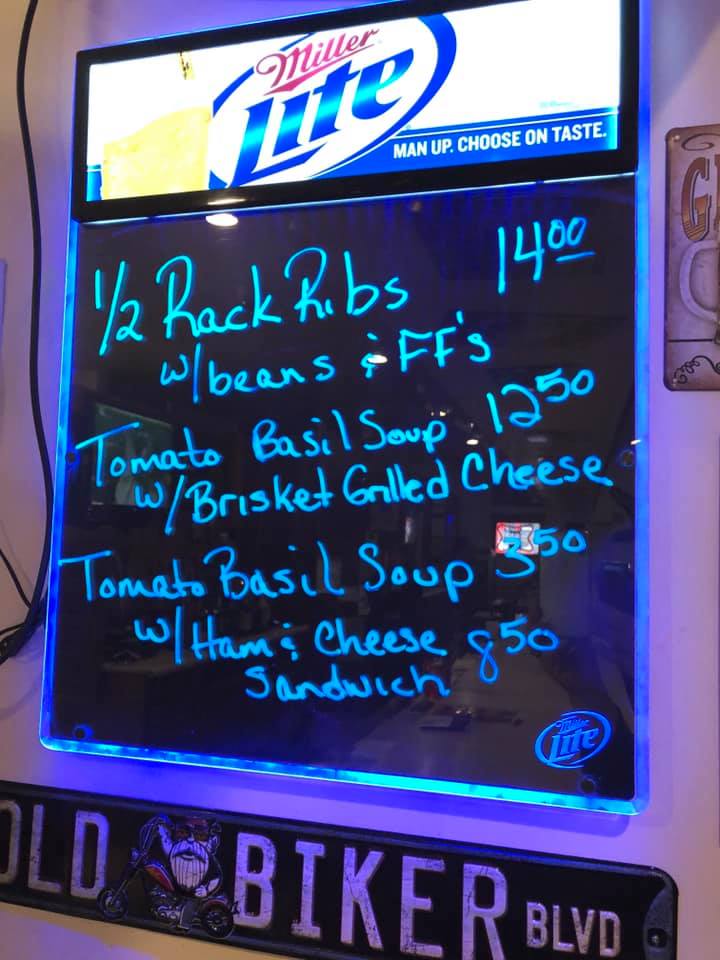 Miller
Lite
MAN UP. CHOOSE ON TASTE.
1/2 Rack Ribs 14 00
w/beans & FF's
Tomato Basil Soup 12 50
w/Brisket Grilled Cheese
Tomato Basil Soup 3 50
w/Ham & Cheese 8 50
Sandwich
Miller
Lite
OLD BIKER BLVD